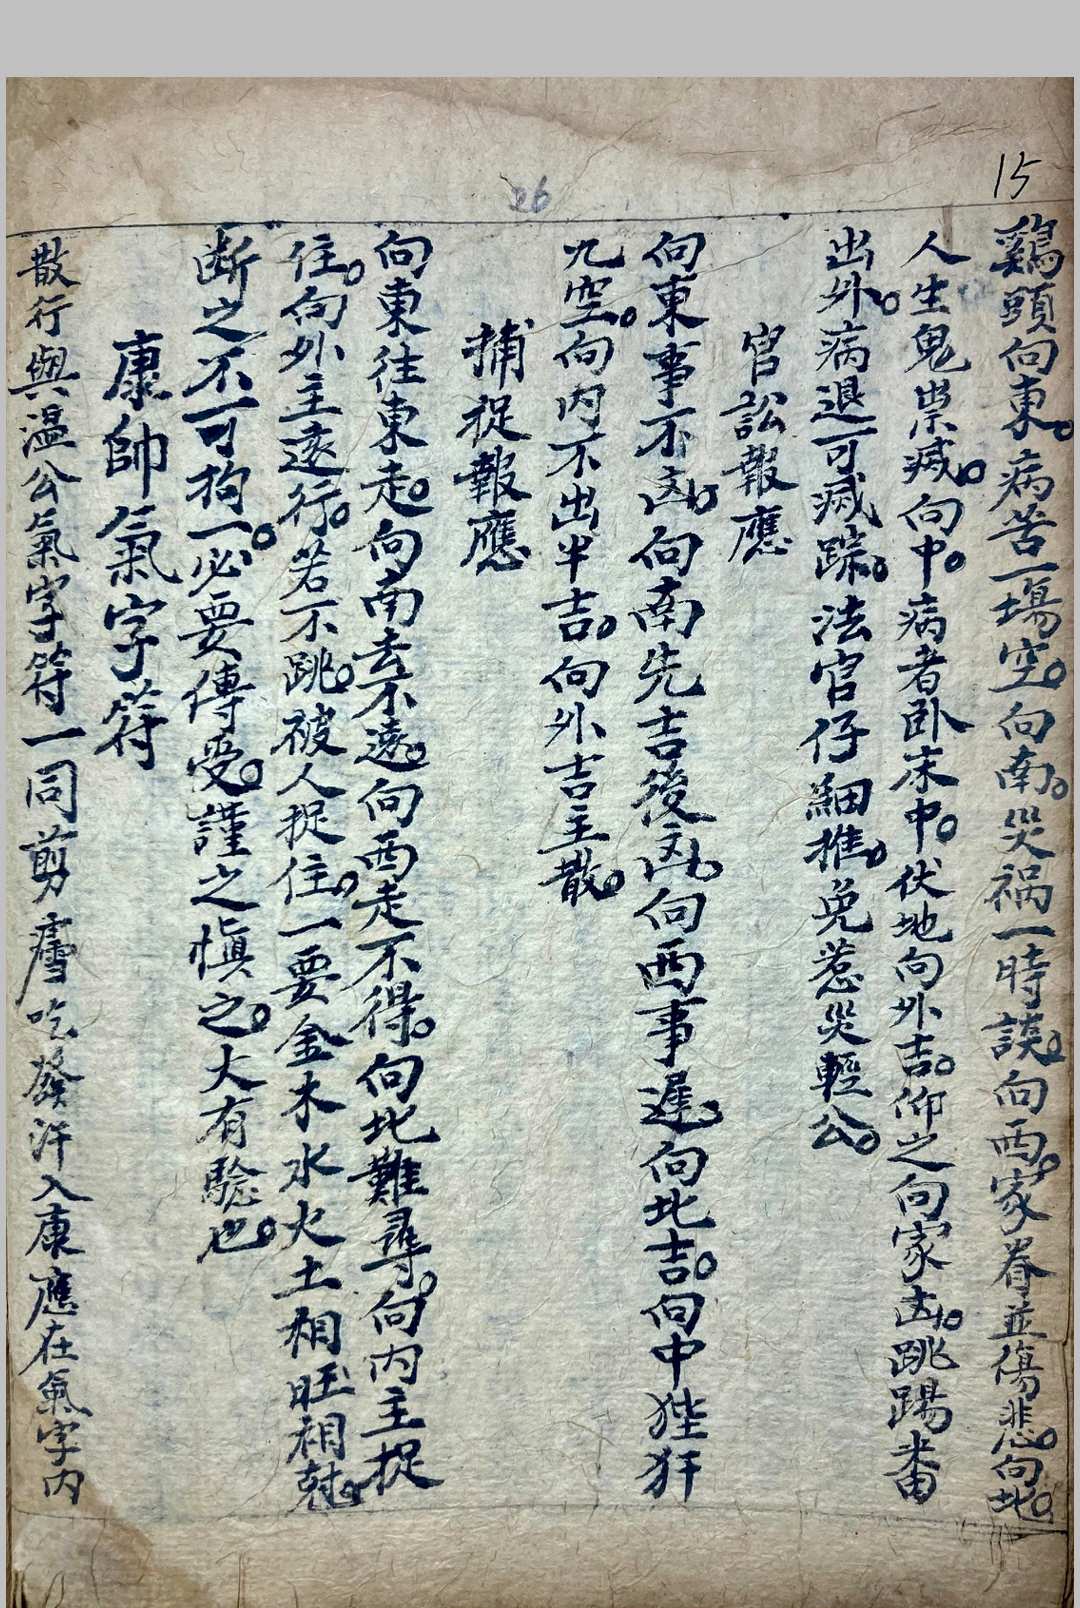 15
26
鷄頭向東。病苦一塲空。向南。災禍一時談。向西。家眷並傷悲。向北。
人生鬼祟滅。向中。病者卧床中。伏地向外吉。仰之向家凶。跳踢番
出外。病退可滅踪。法官仔細推。免惹災輕公。
官訟報應
向東事不凶。向南先吉後凶。向西事遲。向北吉。向中狴犴
九空。向内不出半吉。向外吉主散。
捕捉報應
向東往東走。向南去不遠。向西走不得。向北難尋。向内主捉
住。向外主遠行。若不跳。被人捉住。一要金木水火土相旺相尅。
断之不可拘一。必要傳受。謹之慎之。大有驗也。
康帥氣字符
散行與温公氣字符一同剪吃發汗入康應在氣字内